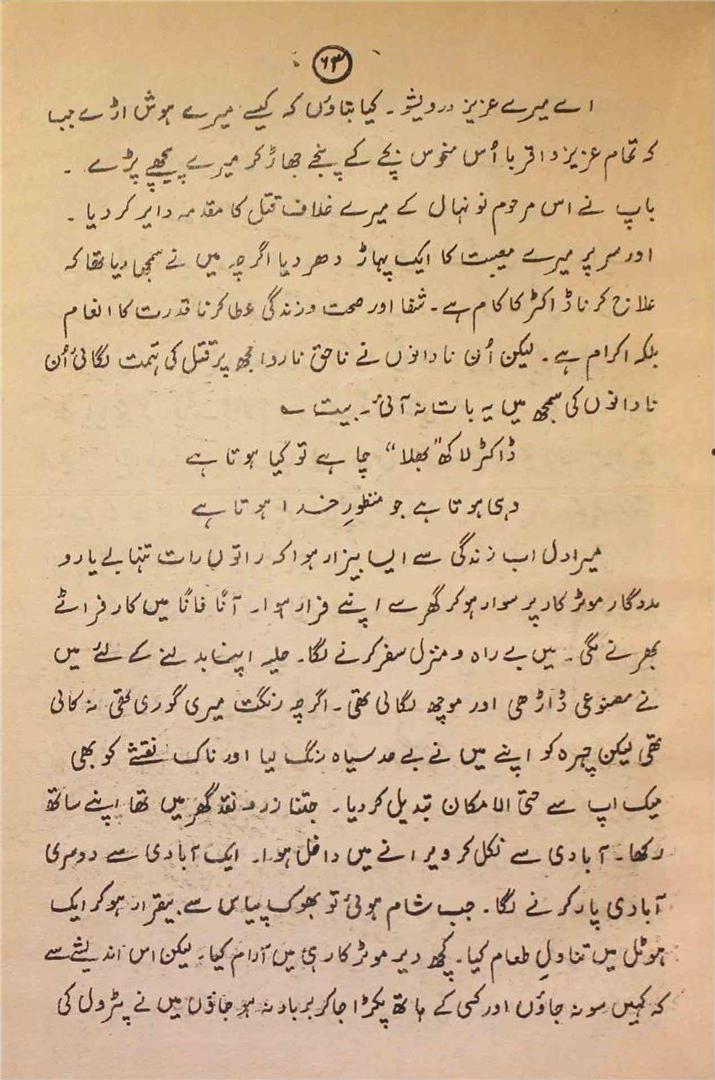 ۶۳
اے میرے عزیز درویشو۔ کیا بتاؤں کہ کیسے میرے ہوش اڑے جب
کہ تمام عزیز و اقربا اُس منحوس بچے کے پنجے جھاڑ کر میرے پیچھے پڑے ۔
باپ نے اس مرحوم نونہال کے میرے خلاف قتل کا مقدمہ دایر کر دیا ۔
اور سر پر میرے مصیبت کا ایک پہاڑ دھر دیا اگرچہ میں نے سمجھا دیا تھا کہ
علاج کرنا ڈاکٹر کا کام ہے۔ شفا اور صحت و زندگی عطا کرنا قدرت کا انعام
بلکہ اکرام ہے۔ لیکن اُن نادانوں نے ناحق ناروا مجھ پر قتل کی تہمت لگائی اُن
نادانوں کی سمجھ میں یہ بات نہ آئی۔ بیت ؎
ڈاکٹر لاکھ "بھلا" چاہے تو کیا ہوتا ہے
وہی ہوتا ہے جو منظورِ خدا ہوتا ہے
میرا دل اب زندگی سے ایسا بیزار ہوا کہ راتوں رات تنہا بے یار و
مددگار موٹر کار پر سوار ہو کر گھر سے اپنے فرار ہوا۔ آناً فاناً میں کار فراٹے
بھرنے لگی۔ میں بے راہ و منزل سفر کرنے لگا۔ حلیہ اپنا بدلنے کے لئے میں
نے مصنوعی ڈاڑھی اور مونچھ لگائی تھی۔ اگرچہ رنگت میری گوری تھی نہ کالی
تھی لیکن چہرہ کو اپنے میں نے بے حد سیاہ رنگ لیا اور ناک نقشے کو بھی
میک اپ سے حتی الامکان تبدیل کر دیا۔ جتنا زر و نقد گھر میں تھا اپنے ساتھ
رکھا۔ آبادی سے نکل کر ویرانے میں داخل ہوا۔ ایک آبادی سے دوسری
آبادی پار کرنے لگا۔ جب شام ہوئی تو بھوک پیاس سے بیقرار ہو کر ایک
ہوٹل میں تناولِ طعام کیا۔ کچھ دیر موٹر کار ہی میں آرام کیا۔ لیکن اس اندیشے سے
کہ کہیں سو نہ جاؤں اور کسی کے ہاتھ پکڑا جا کر برباد نہ ہو جاؤں میں نے پٹرول کی